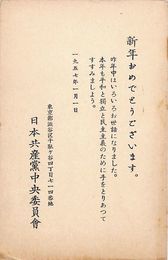 新年おめでとうございます。
昨年中はいろいろお世話になりました。
本年も平和と獨立と民主主義のために手をとりあつて
すすみましよう。
一九五七年一月一日
東京都澁谷區千駄ケ谷四丁目七一四番地
日本共産黨中央委員會